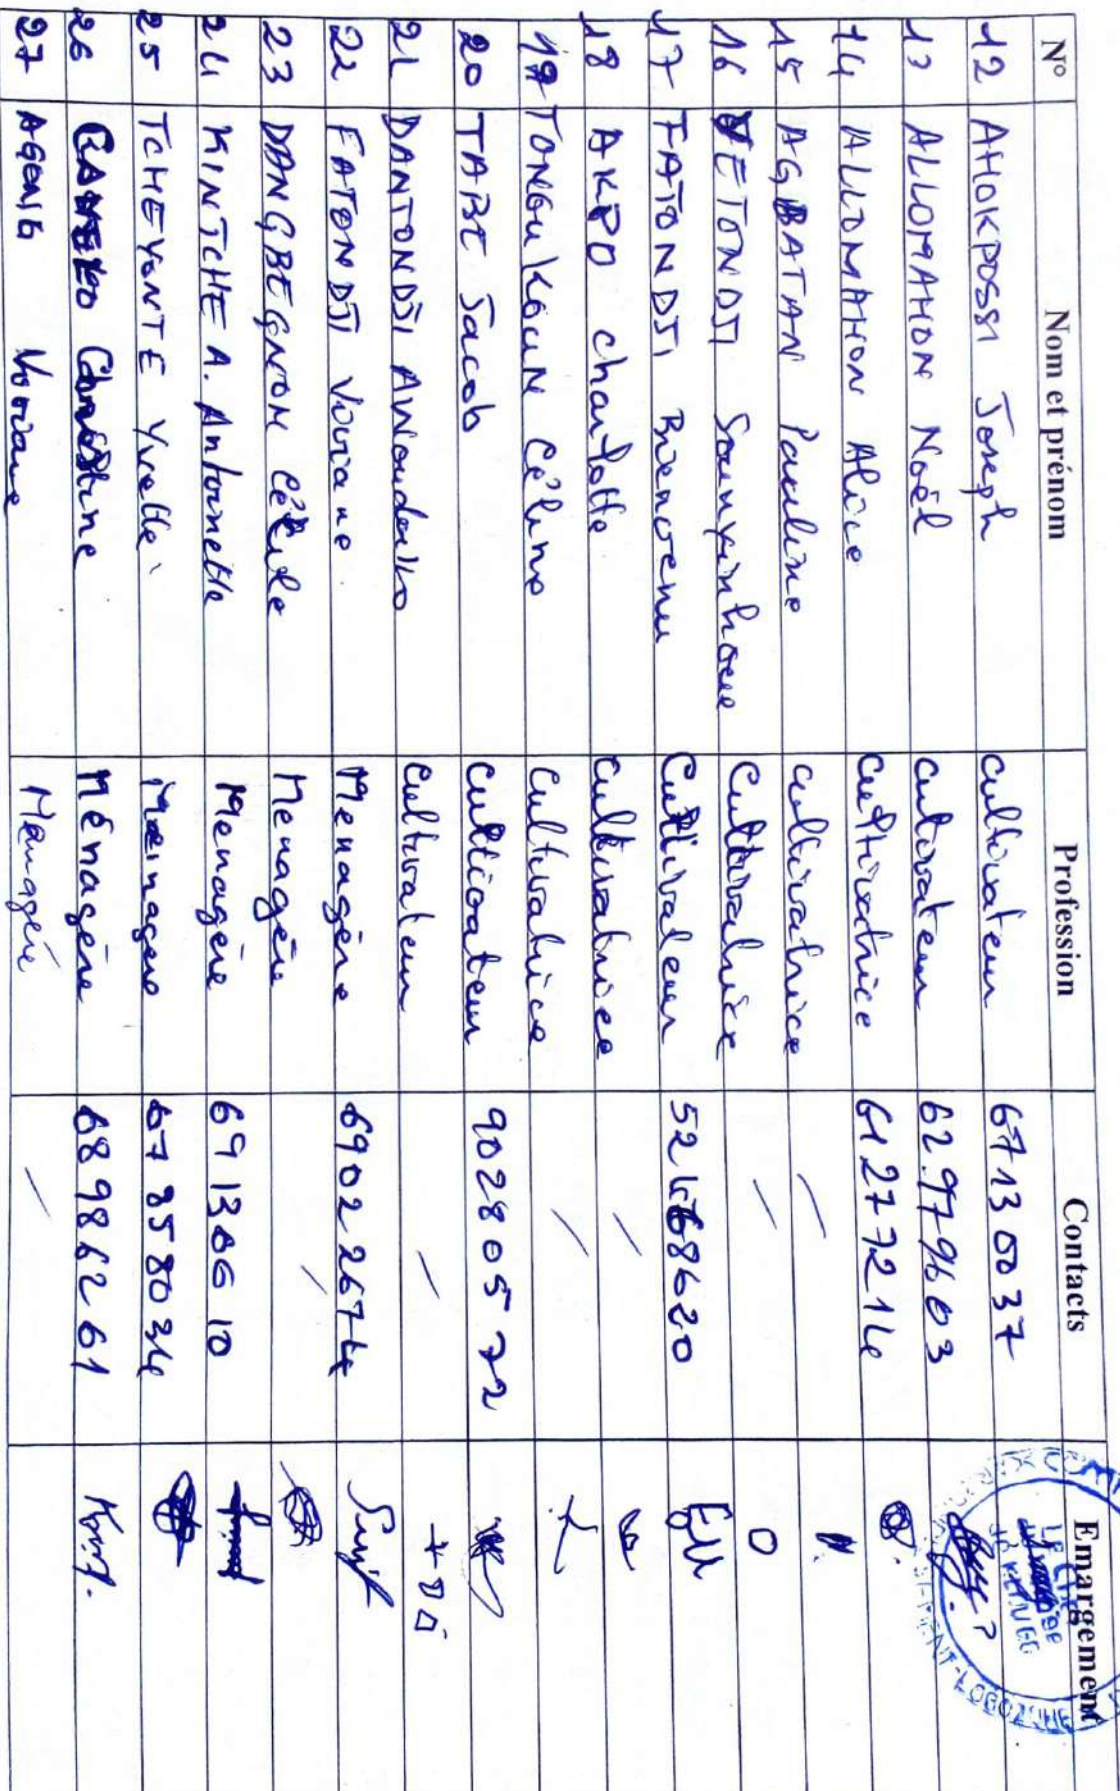 N° Nom et prénom Profession Contacts Emargement
12 AHOKPOSSI Joseph Cultivateur 67130037
13 ALLOMAHON Noël Cultivateur 62979603
14 ALLOMAHON Alice Cultivatrice 61277214
15 AGBATAN Pauline cultivatrice /
16 VETONDJI Cultivatrice /
17 FATONDJI Bienvenu Cultivateur
18 AKPO charlotte Cultivatrice /
19 Céline Cultivatrice /
20 TABE Jacob Cultivateur 90280572
21 DANTONDJI Cultivateur /
22 FATONDJI Viviane Menagère 69022674
23 DANGBEGNON Cécile Menagère /
24 KINTCHE A. Antoinette Menagère
25 TCHEYONTE Yvette 67858034
26 Ménagère 68986261
27 /